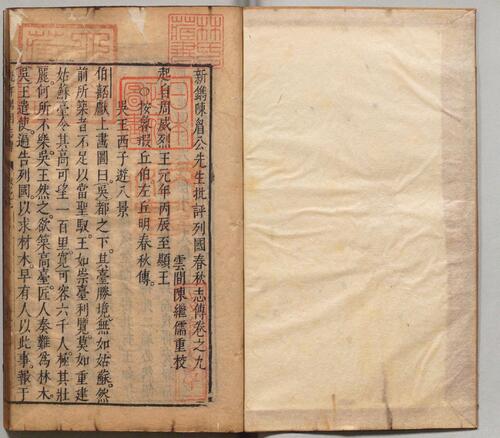 新鐫陳眉公先生批評列國春秋志傳卷之九
雲間陳繼儒重校
起自周威烈王元年丙辰至顯王
○按魯瑕丘伯左丘明春秋傳
吳王西子遊八景
伯嚭獻上畫圖曰吳都之下其臺勝境無如姑蘇然
前所築者不足以當聖馭王如崇臺利覽莫如重建
姑蘇臺令其高可望二百里寬可容六千人極其壯
麗何所不樂吳王然之欲築高臺匠人奏難為林木
吳王遣使過告列國以求材木早有人以此事報于